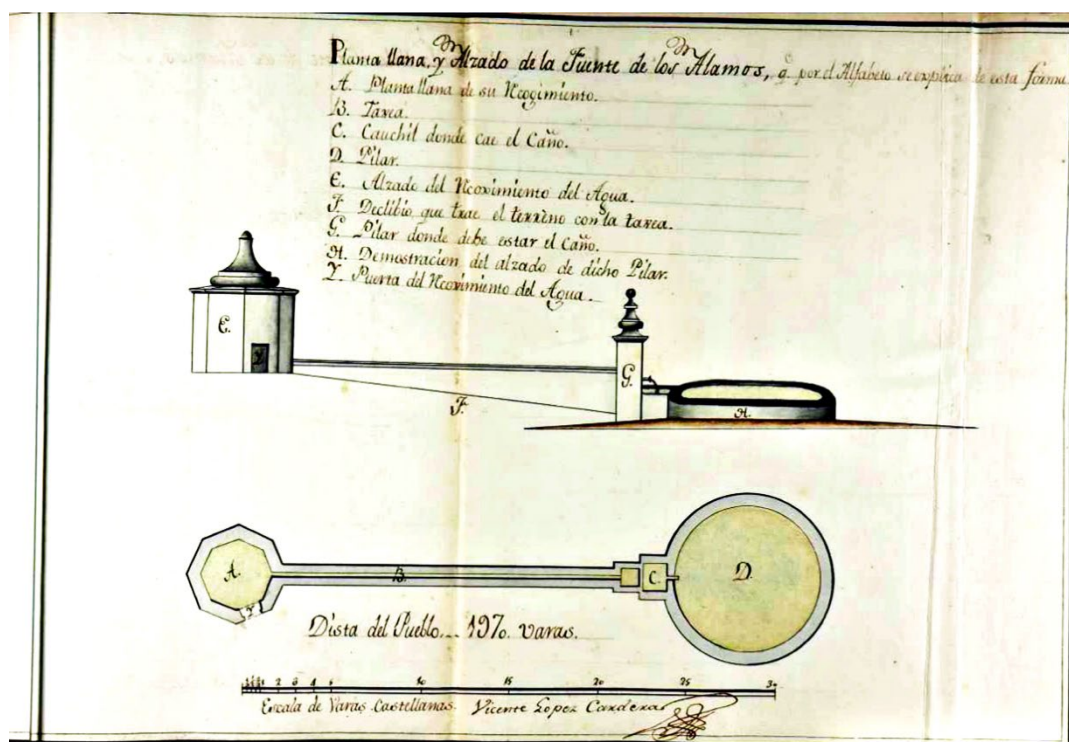 Planta llana, y Alzado de la Fuente de los Álamos, q. por el Alfabeto se explica de esta forma
A. Planta llana de su Recogimiento.
B. Tarea.
C. Cauchil donde cae el Caño.
D. Pilar.
E. Alzado del Recoximiento del Agua.
F. Declibio que trae el terreno con la tarea.
G. Pilar donde debe estar el Caño.
H. Demostracion del alzado de dicho Pilar.
Y. Puerta del Recoximiento del Agua.
E.
Y
G.
F.
H.
A.
B.
C.
D.
Y
Dista del Pueblo... 1970. varas.
1 2 3 4 5 10 15 20 25 30
Escala de Varas Castellanas. Vicente Lopez Cardera